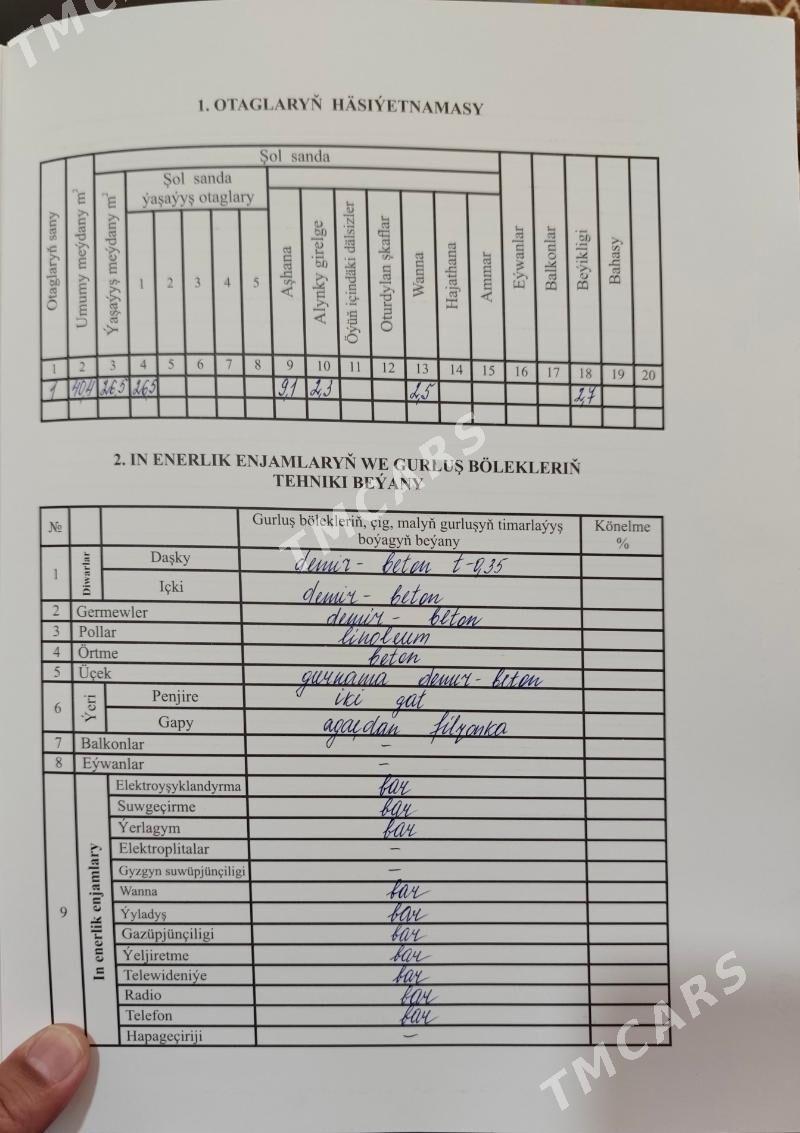 TMCARS
1. OTAGLARYŇ HÄSIÝETNAMASY
Otaglaryň sany
Umumy meýdany m²
Şol sanda
Ýaşaýyş meýdany m²
Şol sanda
ýaşaýyş otaglary
1 2 3 4 5
Aşhana
Alynky girelge
Öýüň içindäki dälsizler
Oturdylan şkaflar
Wanna
Hajathana
Ammar
Eýwanlar
Balkonlar
Beýikligi
Bahasy
1 2 3 4 5 6 7 8 9 10 11 12 13 14 15 16 17 18 19 20
1 40,4 26,5 26,5 9,1 2,3 2,5 2,7
2. IN ENERLIK ENJAMLARYŇ WE GURLUŞ BÖLEKLERIŇ
TEHNIKI BEÝANY
TMCARS
№ Gurluş bölekleriň, çig, malyň gurluşyň timarlaýyş Könelme
boýagyň beýany %
1 Diwarlar Daşky demir-beton t-0,35
Içki demir-beton
2 Germewler demir-beton
3 Pollar linoleum
4 Örtme beton
5 Üçek gurnama demir-beton
6 Ýeri Penjire iki gat
Gapy agaçdan filýonka
7 Balkonlar –
8 Eýwanlar –
9 In enerlik enjamlary Elektroyşyklandyrma bar
Suwgeçirme bar
Ýerlagym bar
Elektroplitalar –
Gyzgyn suwüpjünçiligi –
Wanna bar
Ýyladyş bar
Gazüpjünçiligi bar
Ýeljiretme bar
Telewideniýe bar
Radio bar
Telefon bar
Hapageçiriji –
TMCARS